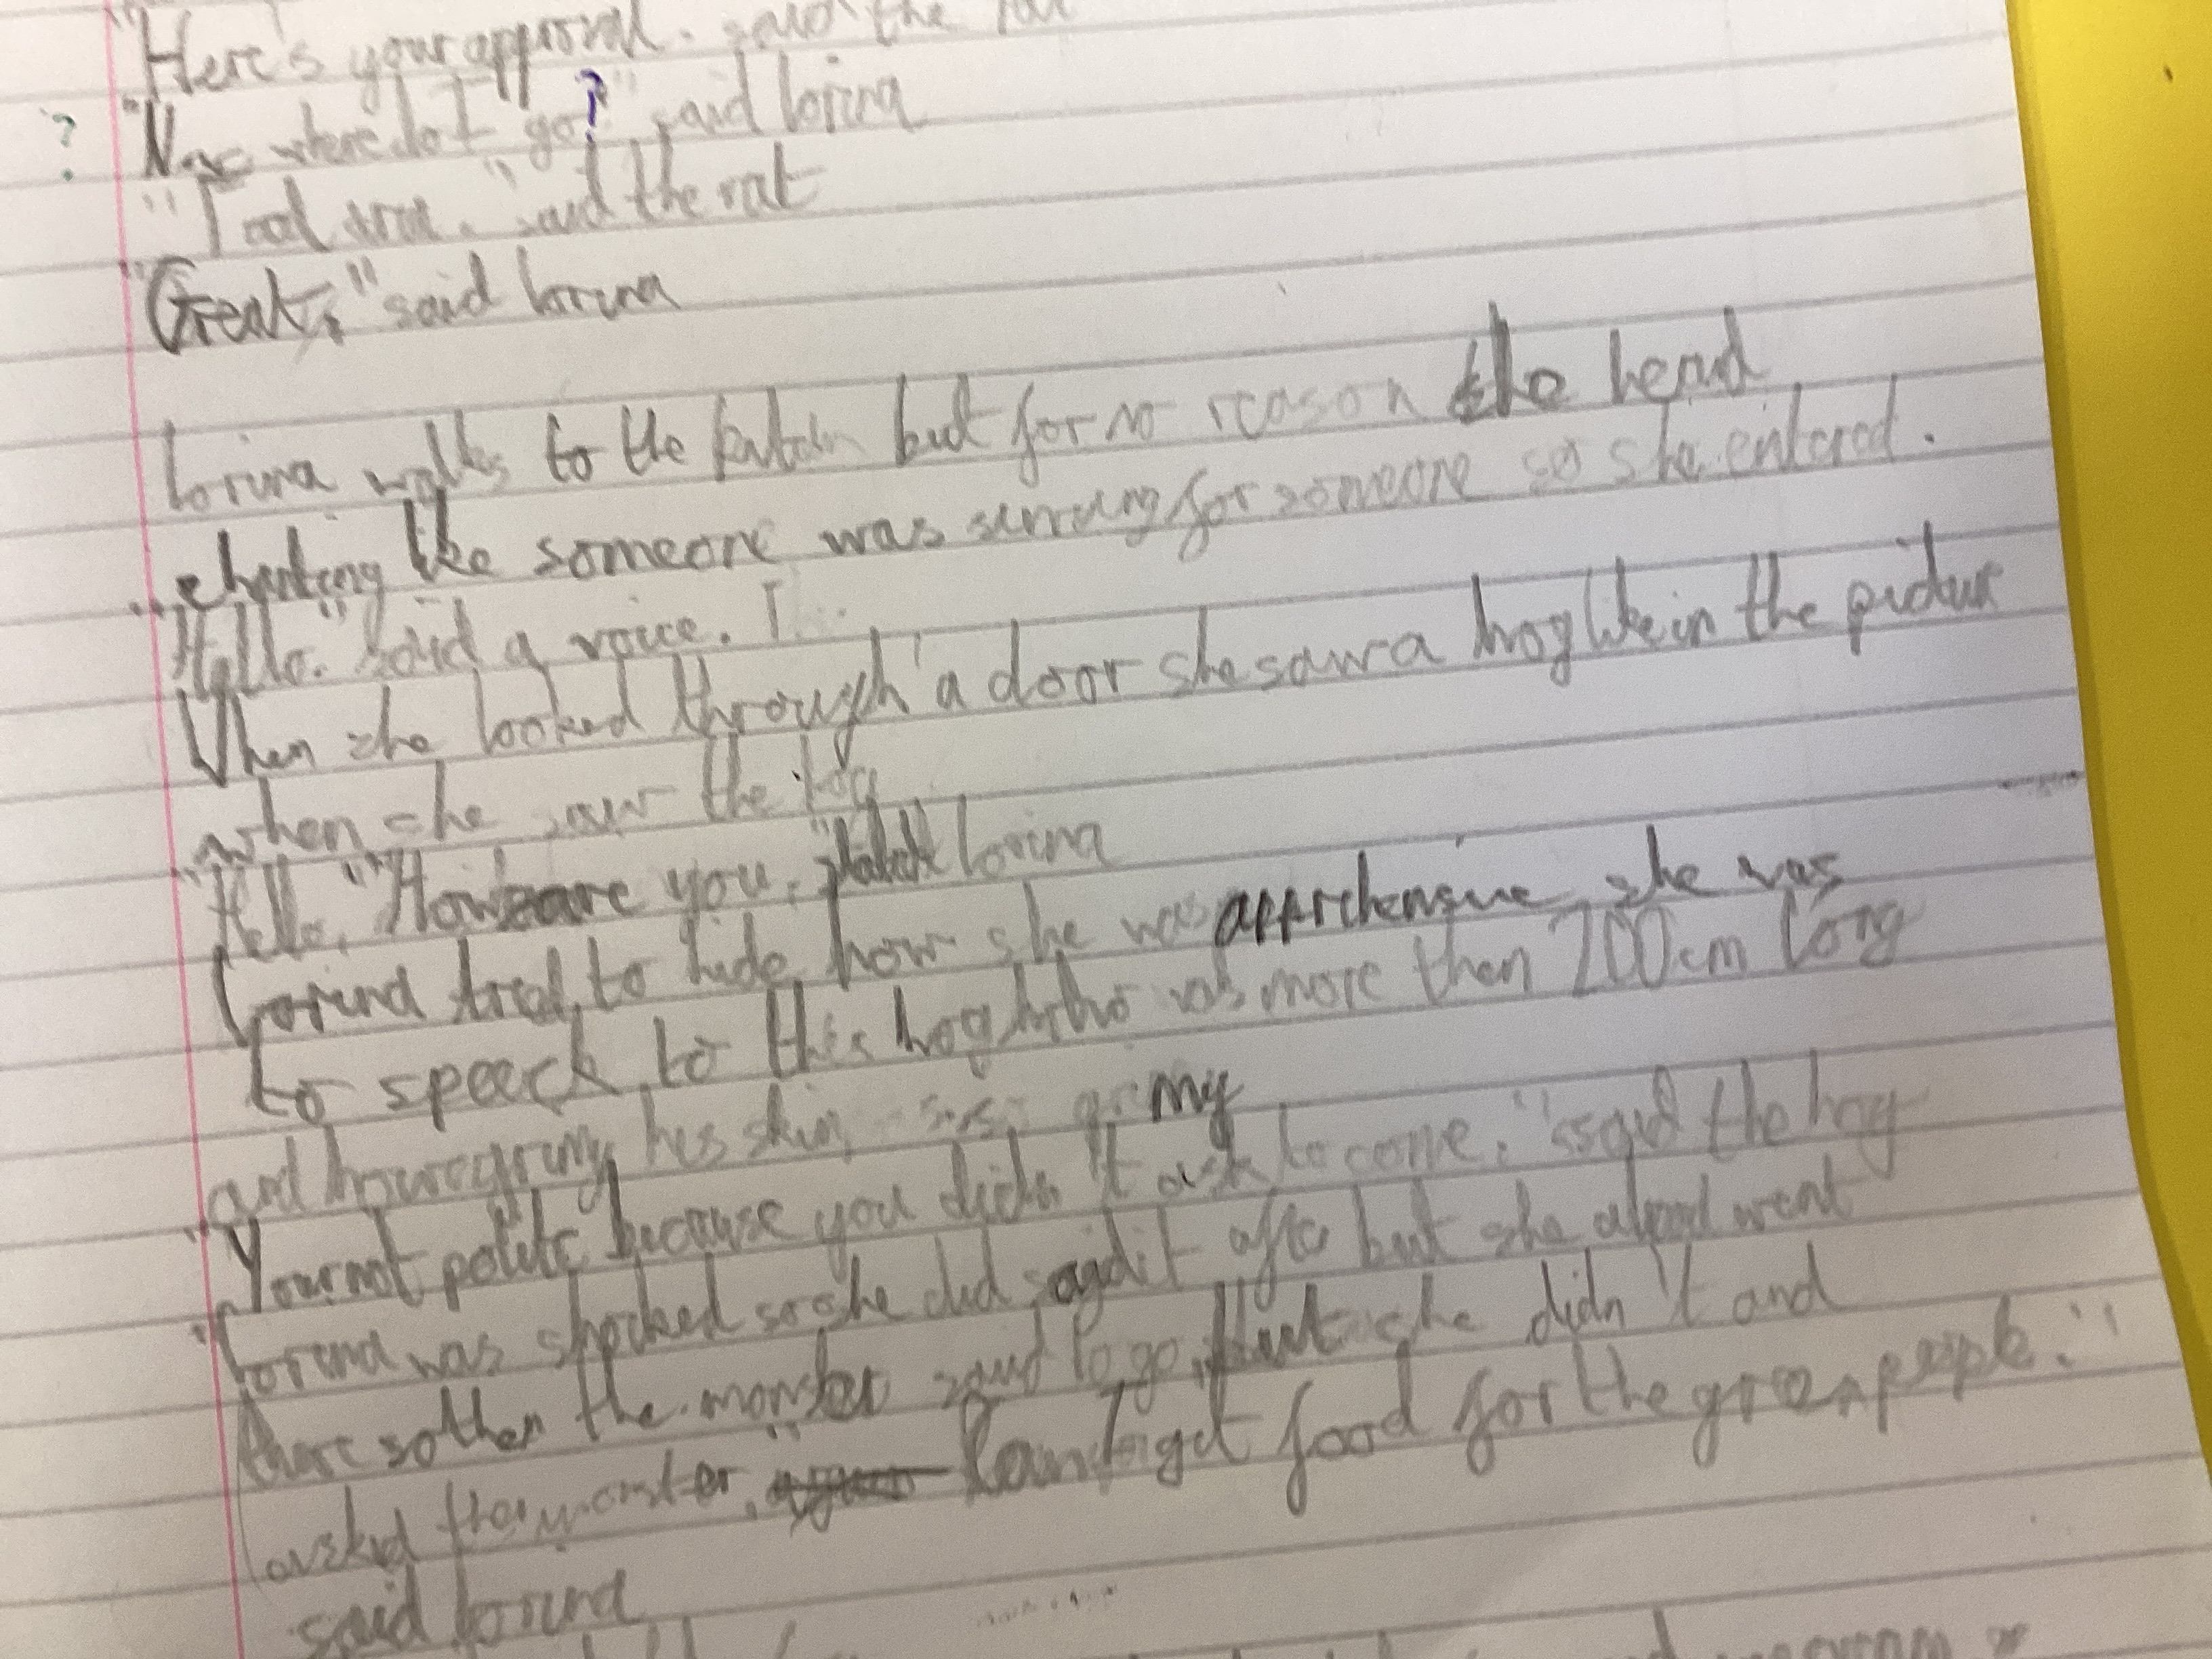 "Here's your approval. said the rat
? "Now where do I go?" said lorina
"Food area." said the rat
"Great." said lorina
lorina walks to the but for no reason she heard
chanting like someone was serving for someone so she entered.
"Hello." said a voice. I
When she looked through a door she saw a hog like in the picture
when she saw the
"Hello, "How are you." lorina
lorina tried to hide how she was apprehensive she was
to speeck to this hog who was more then 200cm long
and how grimy his skin my
"Your not polite because you didn't ask to come." said the hog
"lorina was shocked so she did but she went
there so then the monster said to go, but she didn't and
asked the monster. can I get food for the green people."
said lorina